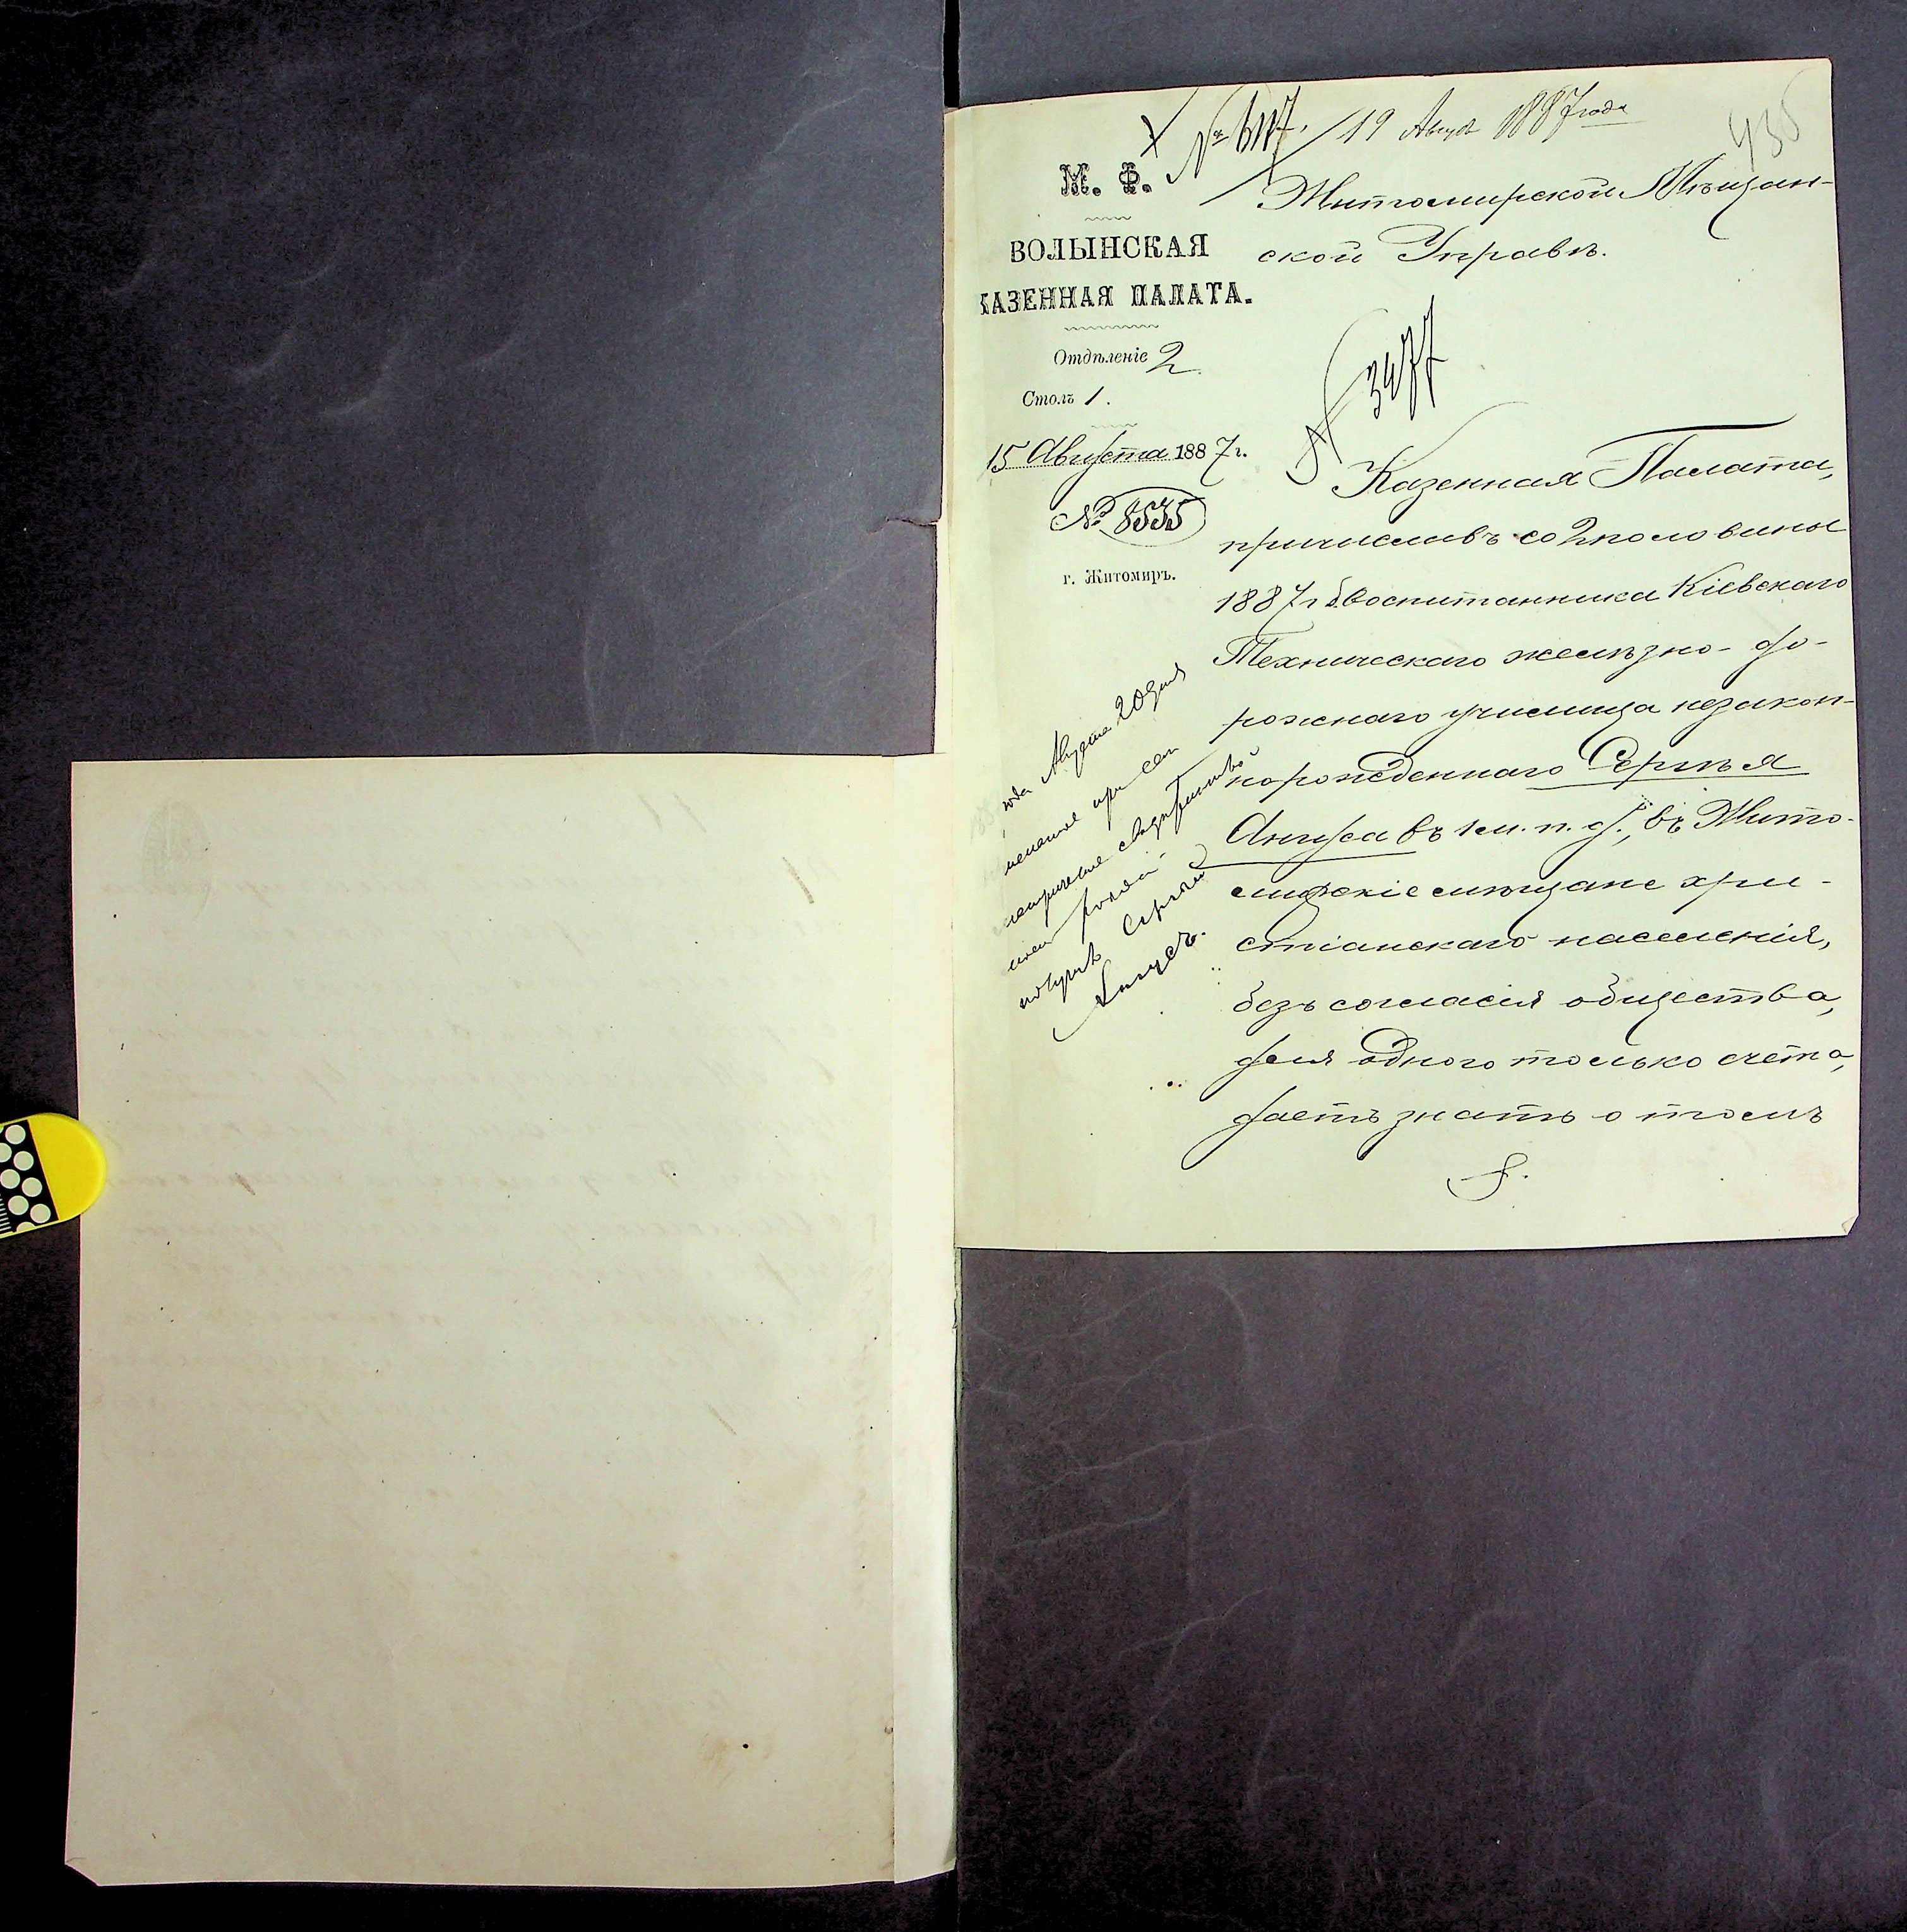 19 Авгус 1887 года
435
М. Ф.
ВОЛЫНСКАЯ
КАЗЕННАЯ ПАЛАТА.
Отдѣленіе 2.
Столъ 1.
15 Августа 1887 г.
№ 8535
г. Житомиръ.
Житомирской Мѣщан-
ской Управѣ.
№ 3477
Казенная Палата,
причисливъ со 2 половины
1887 г. воспитанника Кіевскаго
Техническаго желѣзно-до-
рожнаго училища незакон-
норожденнаго Сергѣя
Ануса въ 1 м. п. д., въ Жито-
мирскіе мѣщане хри-
стіанскаго населенія,
безъ согласія общества,
для одного только счета,
даетъ знать о томъ
года Августа 20 дня
при сем
метрическое свидѣтельство
получилъ Сергѣй
Анусъ.